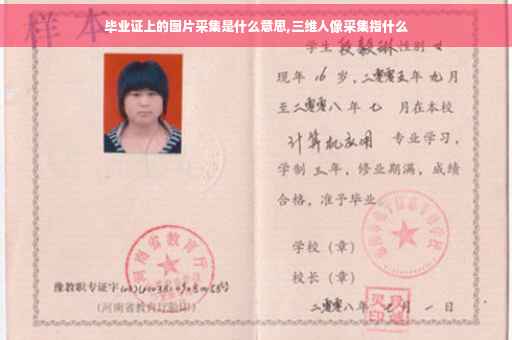 毕业证上的图片采集是什么意思,三维人像采集指什么
样本
学生 段毅琳 性别 女
现年 16 岁,二零零五年 九月
至二零零八年 七 月在本校
计算机应用 专业学习,
学制 三 年,修业期满,成绩
合格,准予毕业
学校(章)
校长(章)
二零零八年 七 月 一 日
河南省教育厅
豫教职专证字
(河南省教育厅验印)